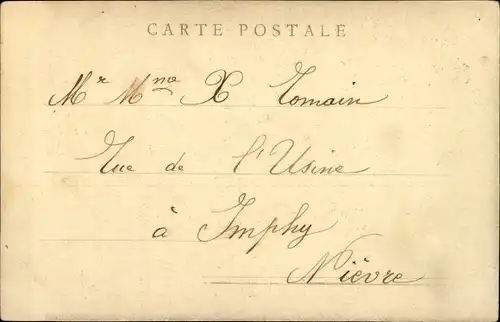 CARTE POSTALE
Mr Mme X Tomain
Rue de l'Usine
à Imphy
Nièvre